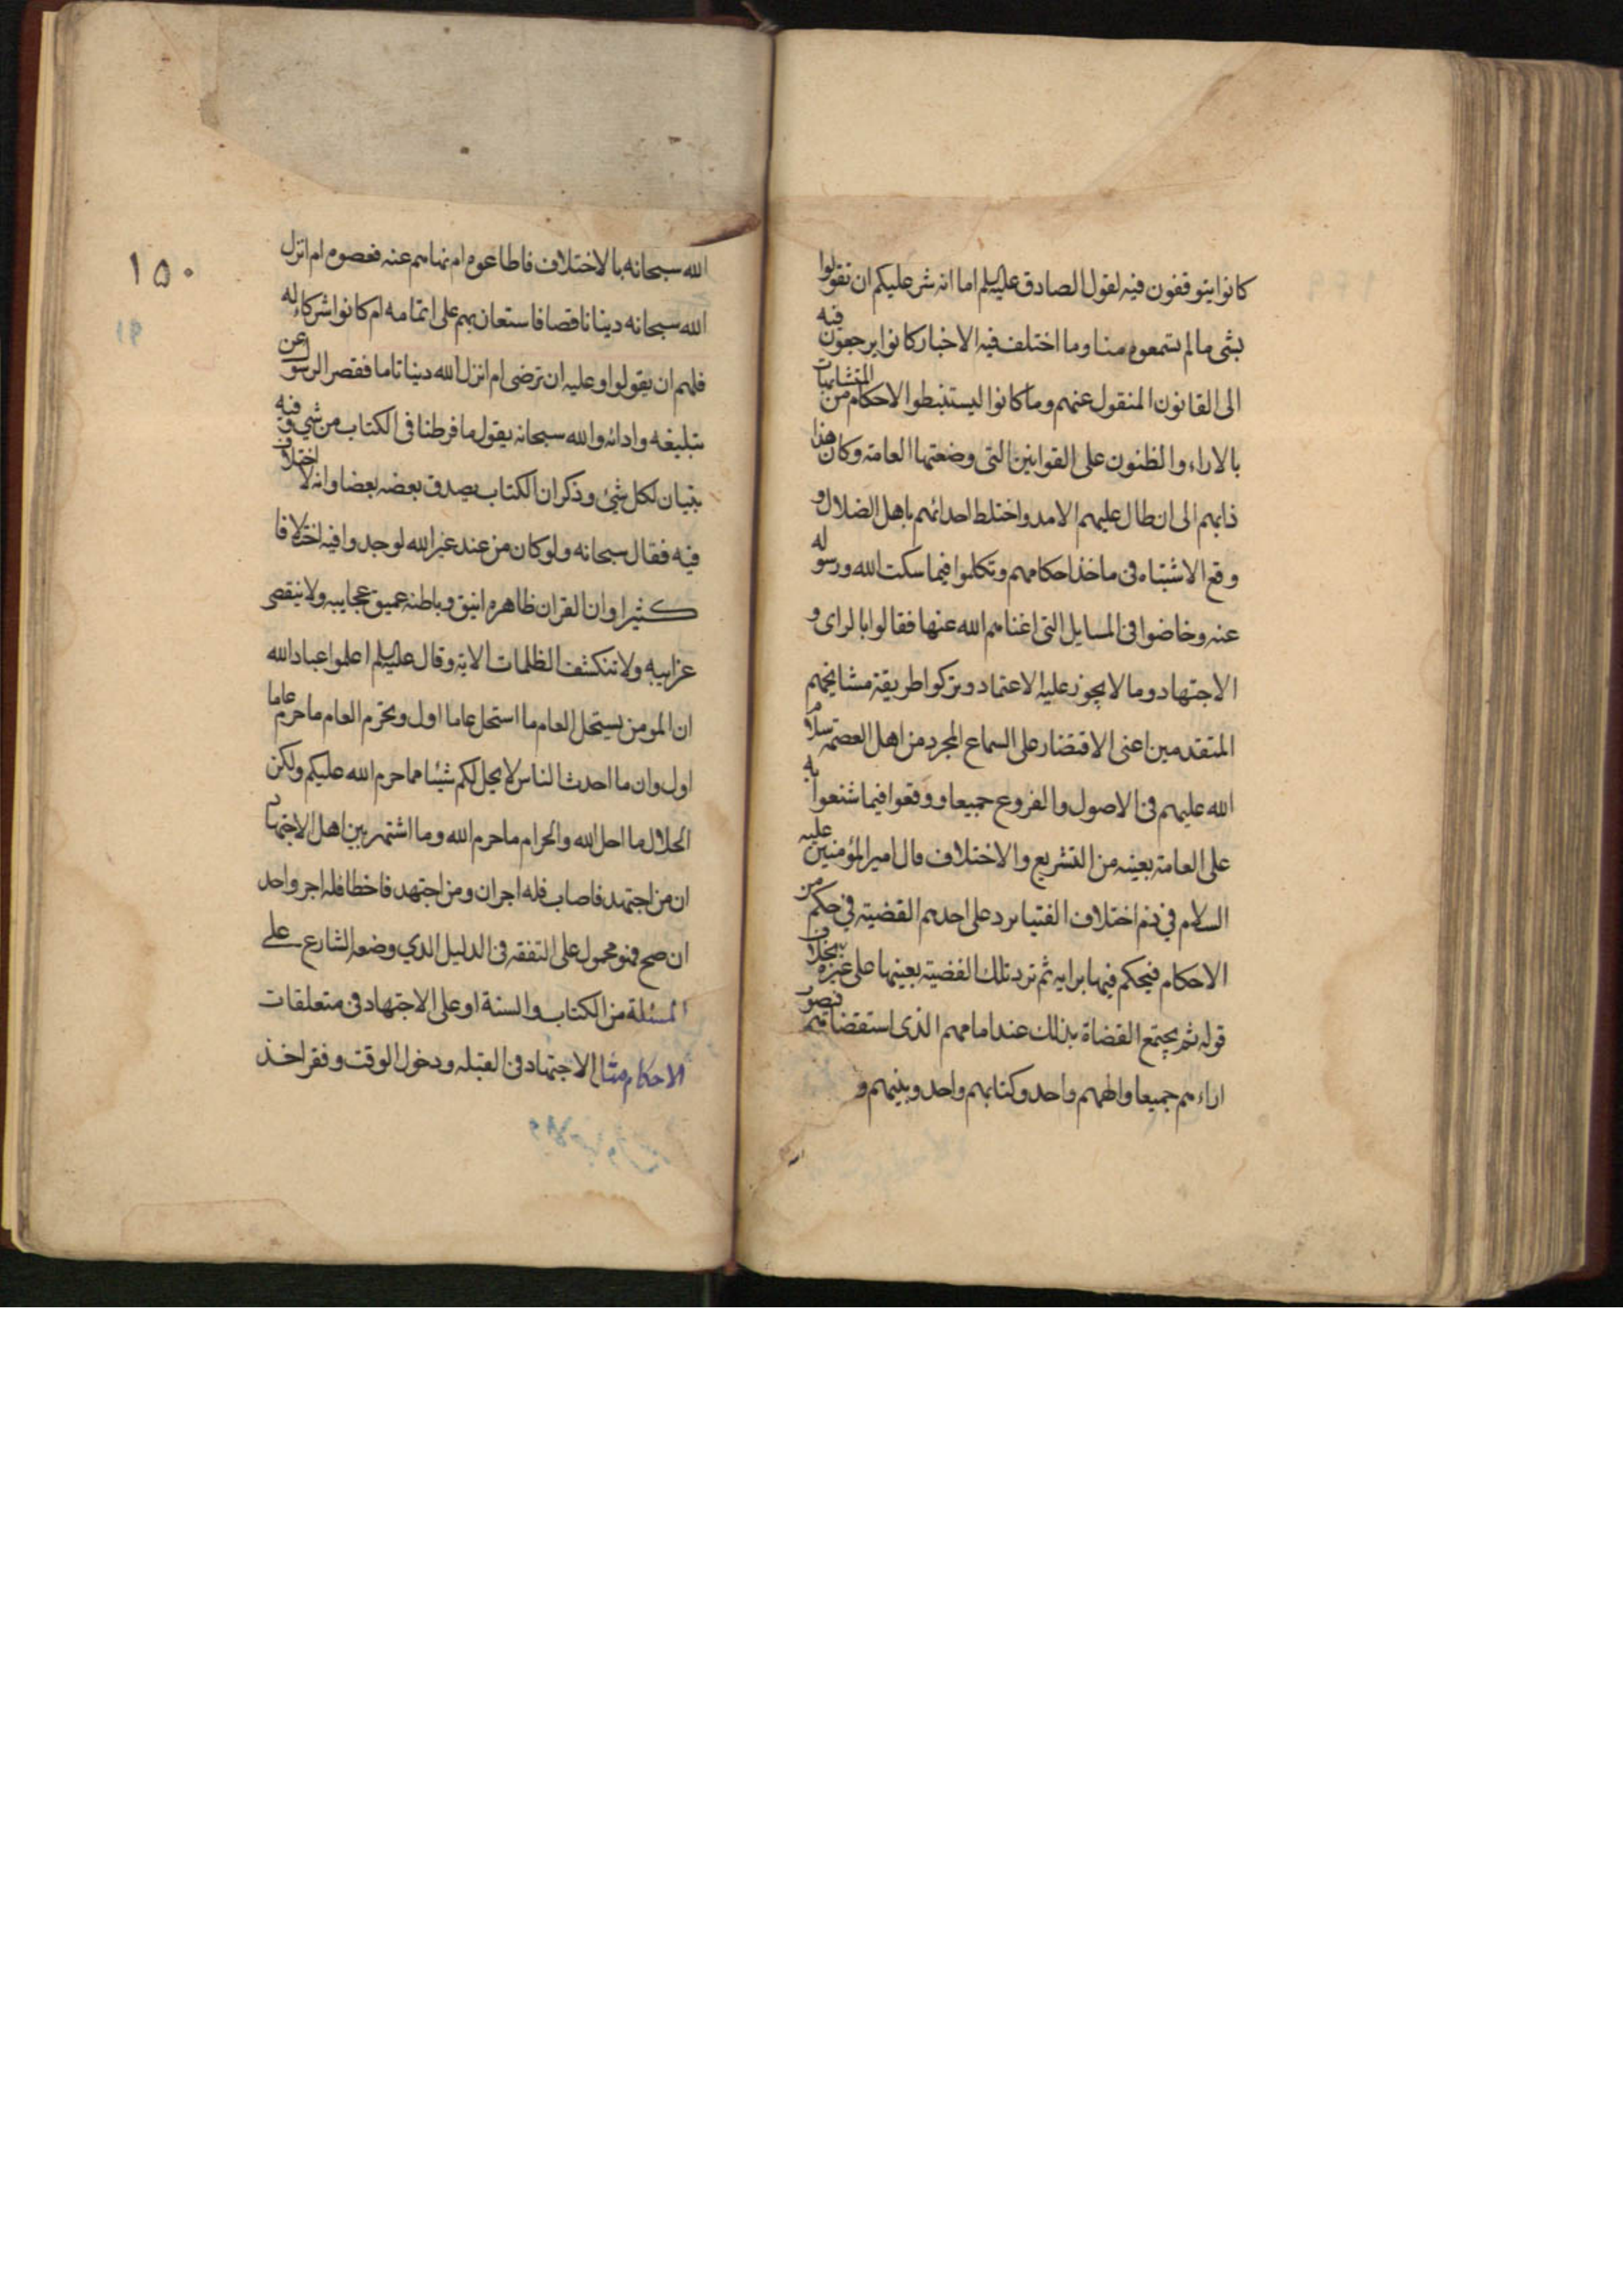 كانوا يتوقفون فيه لقول الصادق عليه السلم اما انه شر عليكم ان تقولوا
بشى ما لم تسمعوه منا وما اختلف فيه الاخبار كانوا يرجعون فيه
الى القانون المنقول عنهم وما كانوا ليستنبطوا الاحكام من المتشابهات
بالاراء والظنون على القوانين التى وضعتها العامة وكان هذا
دابهم الى ان طال عليهم الامد واختلط احداثهم باهل الضلال و
وقع الاشتباه فى ماخذ احكامهم وتكلموا فيما سكت الله ورسوله
عنه وخاضوا فى المسايل التى اغناهم الله عنها فقالوا بالراى و
الاجتهاد وما لا يجوز عليه الاعتماد وتركوا طريقة مشايخهم
المتقدمين اعنى الاقتصار على السماع المجرد من اهل العصمة سلام
الله عليهم فى الاصول والفروع جميعا ووقعوا فيما شنعوا به
على العامة بعينه من التشريع والاختلاف قال امير المؤمنين عليه
السلام في ذم اختلاف الفتيا ترد على احدهم القضية في حكم من
الاحكام فيحكم فيها برايه ثم ترد تلك القضية بعينها على غيره بخلاف
قوله ثم يجتمع القضاة بذلك عند امامهم الذى استقضاهم فيصو
اراءهم جميعا والههم واحد وكتابهم واحد ونبيهم و
١٥٠
٩١
الله سبحانه بالاختلاف فاطاعوه ام نهاهم عنه فعصوه ام انزل
الله سبحانه دينا ناقصا فاستعان بهم على اتمامه ام كانوا شركاء له
فلهم ان يقولوا وعليه ان ترضى ام انزل الله دينا تاما فقصر الرسول عن
تبليغه وادائه والله سبحانه يقول ما فرطنا فى الكتاب من شي و فيه
تبيان لكل شئ وذكر ان الكتاب يصدق بعضه بعضا وانه لا اختلاف
فيه فقال سبحانه ولو كان من عند غير الله لوجدوا فيه اختلافا
كثيرا وان القران ظاهره انيق وباطنه عميق عجايبه ولا تنقضى
غرايبه ولا تنكشف الظلمات الا به وقال عليه السلم اعلموا عباد الله
ان المومن يستحل العام ما استحل عاما اول ويحرم العام ما حرم عاما
اول وان ما احدث الناس لا يحل لكم شيئا مما حرم الله عليكم ولكن
الحلال ما احل الله والحرام ما حرم الله وما اشتهر بين اهل الاجتهاد
ان من اجتهد فاصاب فله اجران ومن اجتهد فاخطا فله اجر واحد
ان صح فهو محمول على التفقه فى الدليل الذي وضعه الشارع على
المسئلة من الكتاب والسنة او على الاجتهاد فى متعلقات
الاحكام مثال الاجتهاد فى القبله ودخول الوقت وفقر اخذ